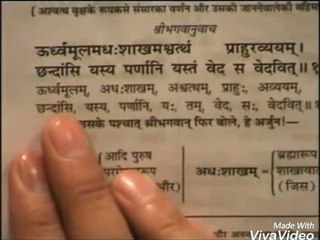 ( अश्वत्थ वृक्षके रूपकसे संसारका वर्णन और उसको जाननेवालेकी महिमा
श्रीभगवानुवाच
ऊर्ध्वमूलमधःशाखमश्वत्थं प्राहुरव्ययम्।
छन्दांसि यस्य पर्णानि यस्तं वेद स वेदवित्॥ १
ऊर्ध्वमूलम्, अधःशाखम्, अश्वत्थम्, प्राहुः, अव्ययम्,
छन्दांसि, यस्य, पर्णानि, यः, तम्, वेद, सः, वेदवित्॥
उसके पश्चात् श्रीभगवान् फिर बोले, हे अर्जुन!—
(आदि पुरुष
अधःशाखम् =
(जिस)
Made With
VivaVideo